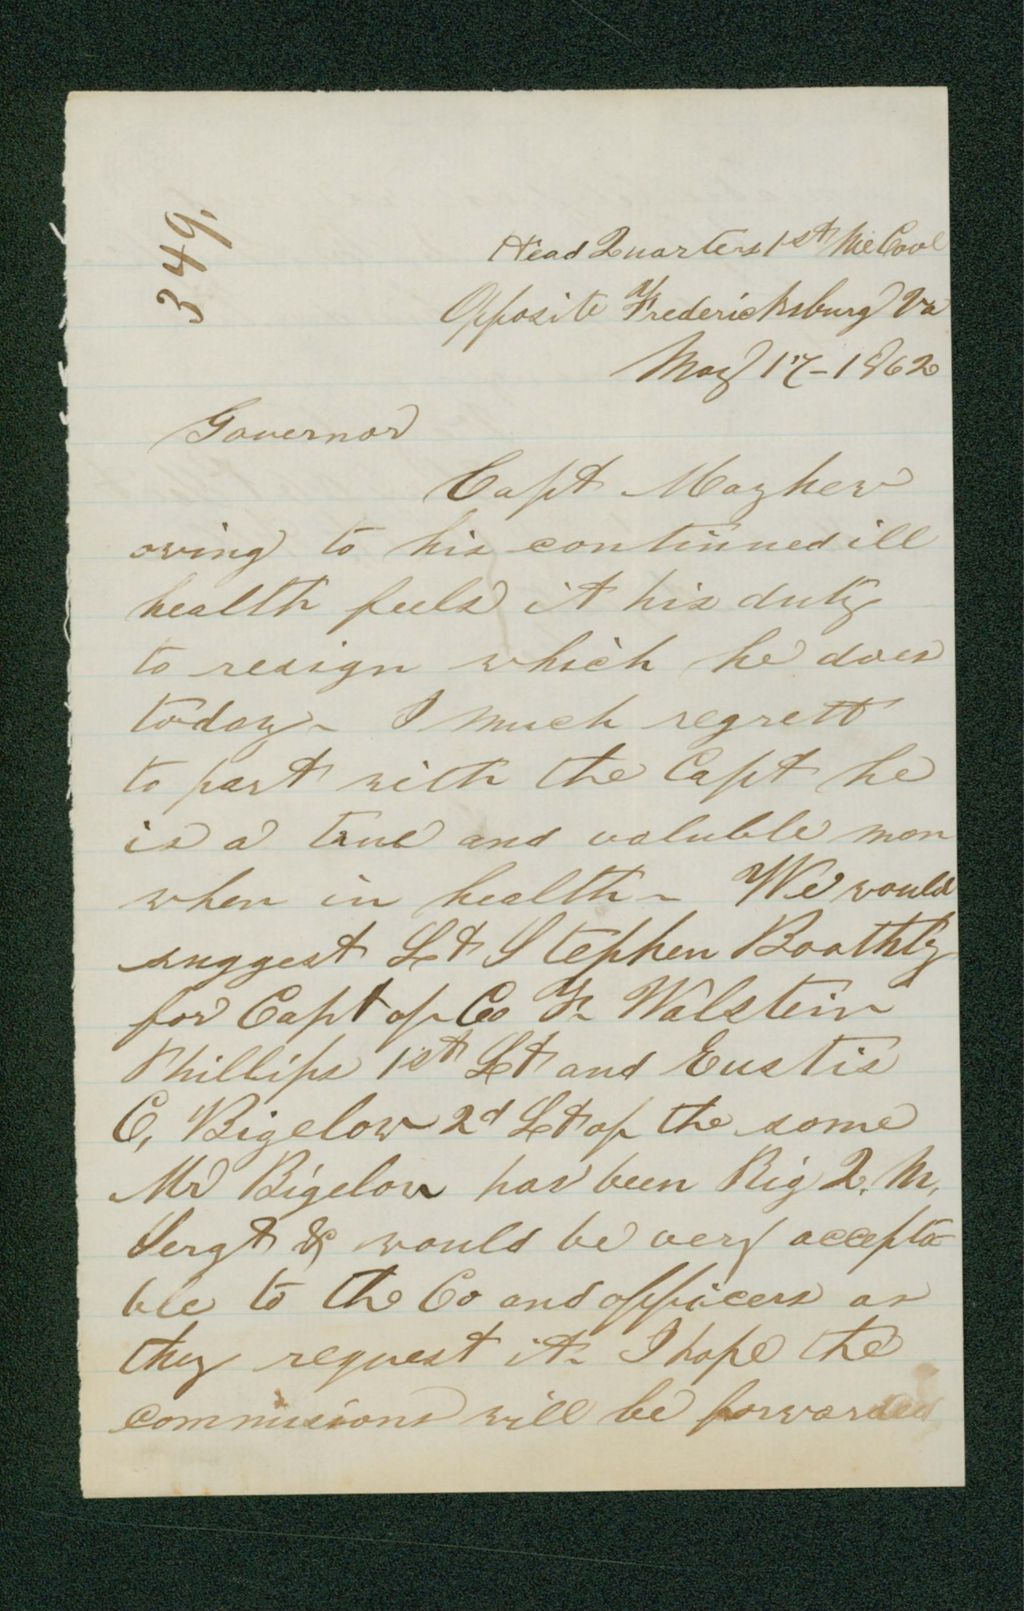 349.
Head Quarters 1st Me Cavl
Opposite Fredericksburg Va
May 17-1862
Governor
Capt Mayhew
owing to his continued ill
health feels it his duty
to resign which he does
today - I much regrett
to part with the Capt he
is a true and valuble man
when in health - We would
suggest Lt Stephen Boothby
for Capt of Co F - Walstein
Phillips 1st Lt and Eustis
C, Bigelow 2d Lt of the same
Mr Bigelow has been Rig Q. M.
Sergt & would be very accepta-
ble to the Co and officers as
they request it - I hope the
commisions will be forwarded